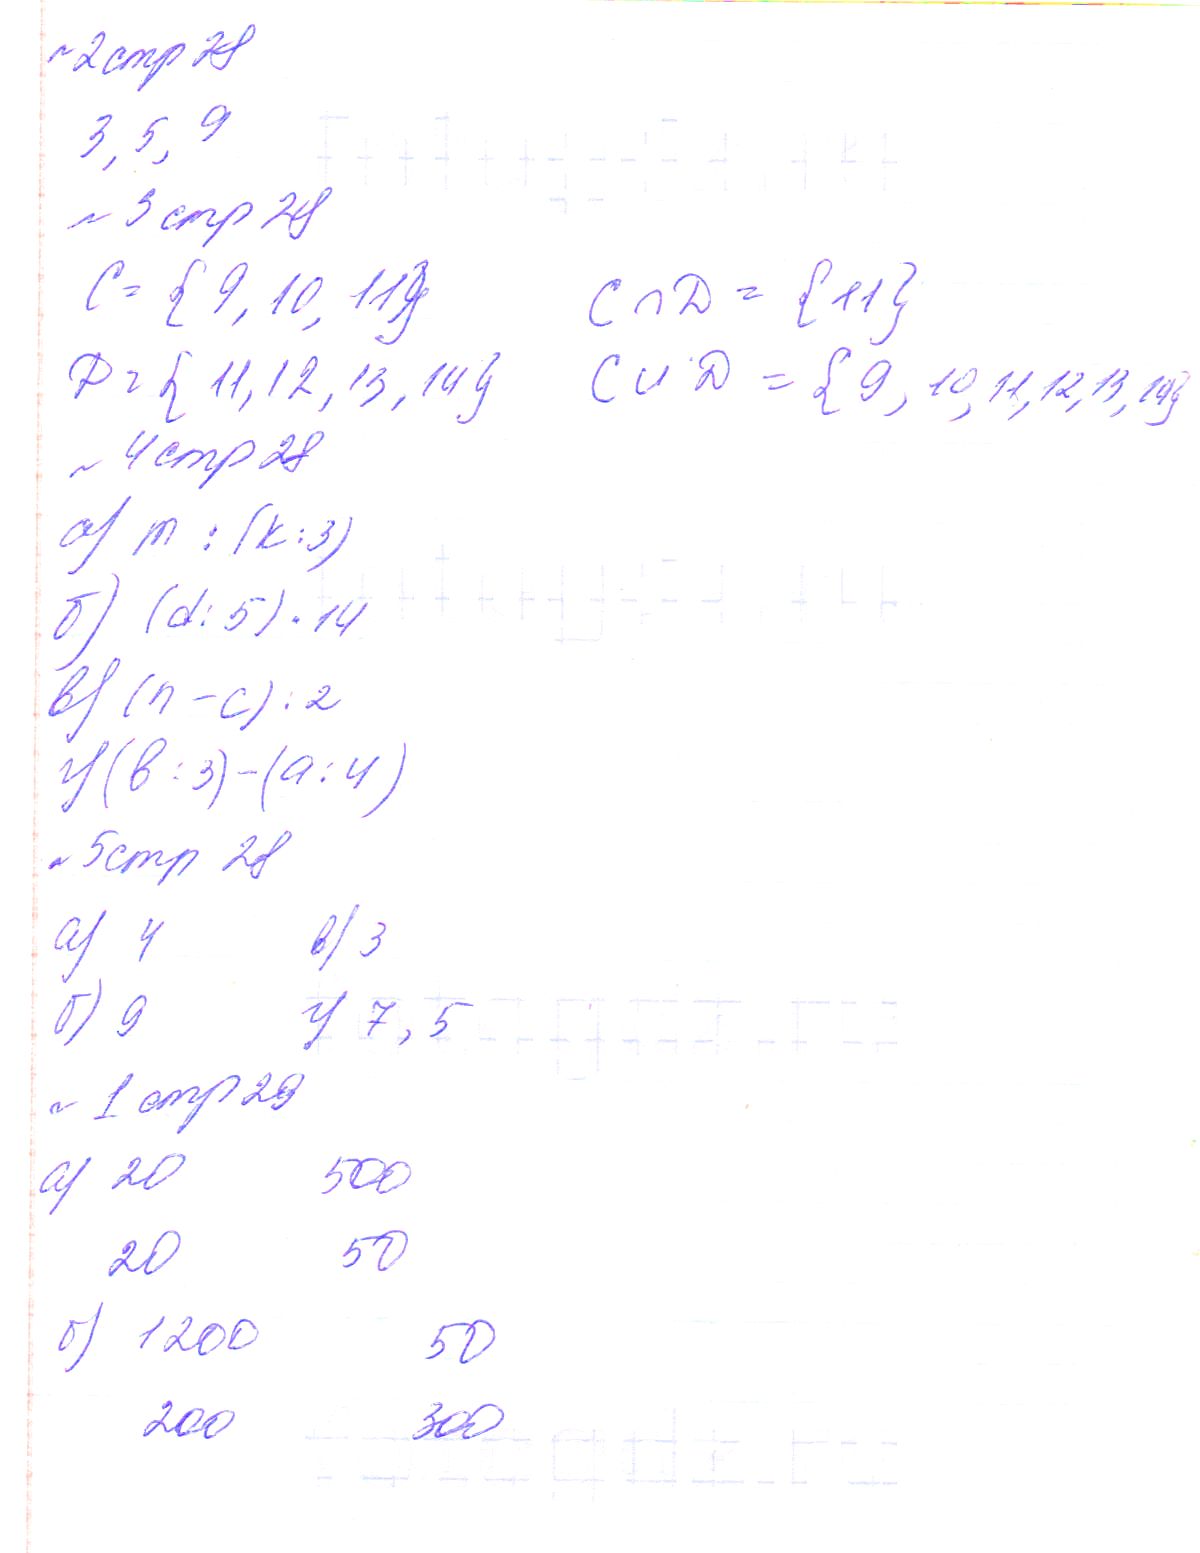 ~2 стр 28
3, 5, 9
~ 3 стр 28
C = {9, 10, 11} C ∩ D = {11}
D = {11, 12, 13, 14} C ∪ D = {9, 10, 11, 12, 13, 14}
~ 4 стр 28
а) m : (k : 3)
б) (d : 5) · 14
в) (n - c) : 2
г) (b : 3) - (a : 4)
~ 5 стр 28
а) 4 в) 3
б) 9 г) 7, 5
~ 1 стр 29
а) 20 500
20 50
б) 1200 50
200 300